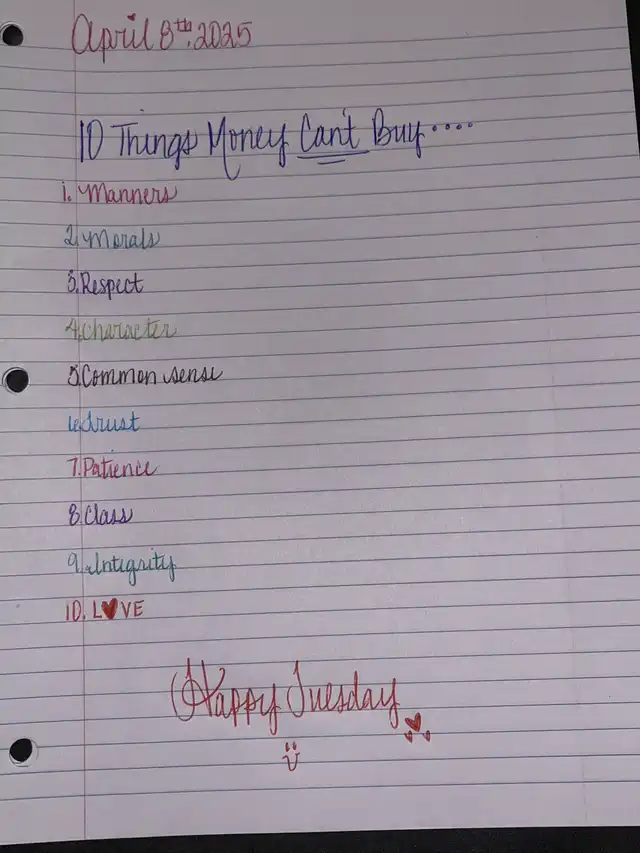 April 8th, 2025
10 Things Money Can't Buy....
1. Manners
2. Morals
3. Respect
4. Character
5. Common sense
6. Trust
7. Patience
8. Class
9. Integrity
10. L❤VE
Happy Tuesday